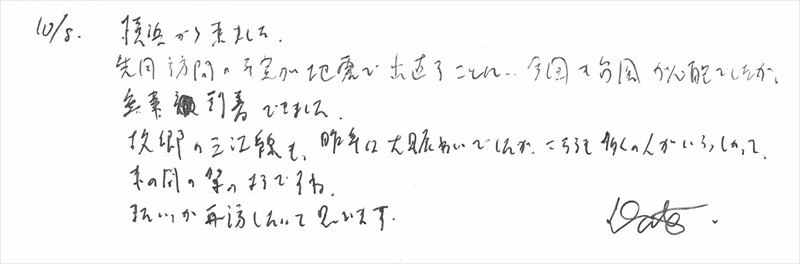 10/8. 横浜から来ました。
先回訪問の予定が地震で出直すことに‥今回も台風が心配でしたが、
無事到着できました。
故郷の三江線も、昨年は大賑わいでしたが、こちらも多くの人がいらっしゃって、
束の間の祭のようですね。
またいつか再訪したいと思います。